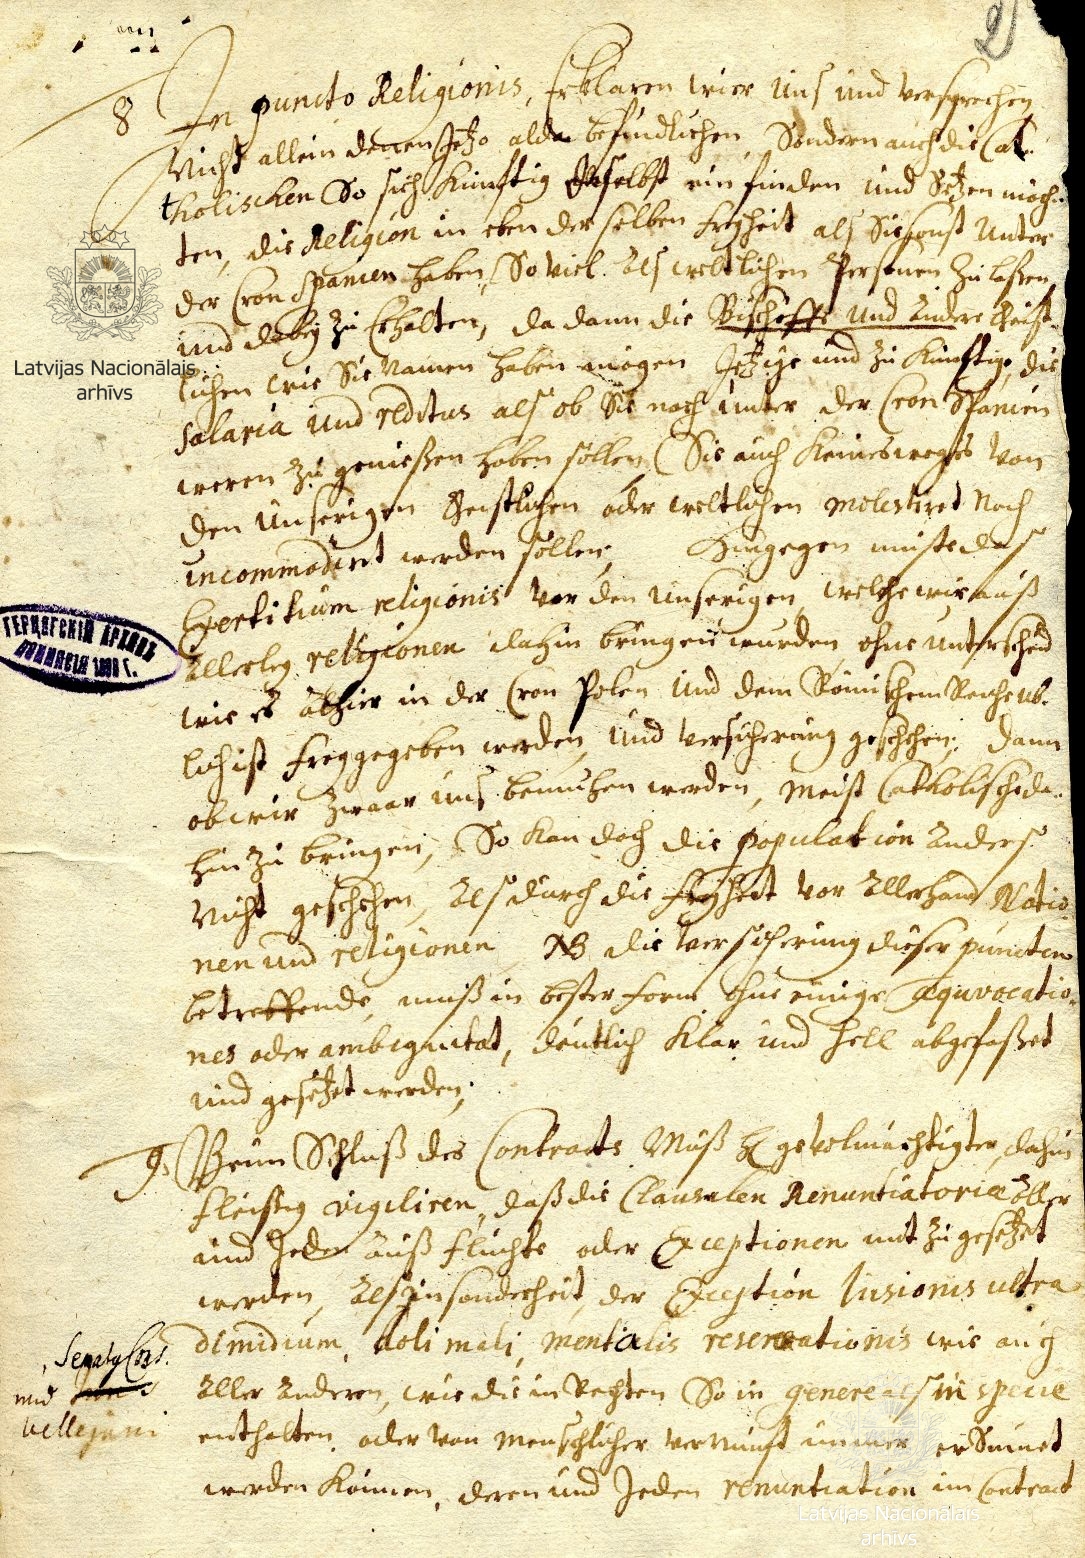 2
8 In puncto Religionis, Erklären wier Uns und versprechen
Nicht allein denen Jetzo alda befindlichen, Sondern auch die Cat-
tholischen So sich künfftig daselbst einfinden und Setzen möch-
ten, die Religion in eben der selben freyheit als Sie sonst Unter
der Cron Spanien haben, So viel als weltlichen Persenen zu laßen
und dabey zu Erhalten, da dann die Bischoffe und andre Geist-
lichen wie Sie Namen haben mögen Jetzige und zu künfftige, die
Salaria und reditus als ob Sie noch unter der Cron Spanien
weren zu genießen haben sollen, Sie auch keinesweges von
den Unserigen Geistlichen oder weltlichen molestiret Noch
incommodirt werden sollen; Hingegen muste das
Exercitium religionis vor den unserigen, welche wir auß
allerley religionen dahin bringen wurden ohne unterscheid
wie es alhier in der Cron Polen und dem Römischem Reiche ub-
lich ist freygegeben werden, und versicherung geschehen; dann
ob wir zwaar uns bemuhen werden, meist Catholische da-
hin zu bringen, So kan doch die population anders
Nicht geschehen, als durch die freyheit vor allerhand Natio-
nen und religionen NB die versicherung dieser puncten
betreffende, muß in bester form ohne einige æquvocatio-
nes oder ambiguitat, deutlich klar und hell abgefaßet
und gesetzet werden;
9. Beim Schluß des Contracts Muß H gevolmächtigter, dahin
fleißig vigiliren, daß die Clausulen Renuntiatoriæ aller
und Jeder außfluchte oder Exceptionen mit zu gesetzet
werden, als insonderheit, der Exception læsionis ultra
dimidium, doli mali, mentalis reservationis wie auch
Senatus Cons.
und
vellejani
aller anderen, wie die in Rechten So in genere als in specie
enthalten oder von menschlicher vernunft immer ersinnet
werden können, deren und Jeden renuntiation im Contract
Latvijas Nacionālais
arhīvs
ГЕРЦОГСКІЙ АРХИВЪ
КОММИСІЯ 18 Г.
Latvijas Nacionālais
arhīvs